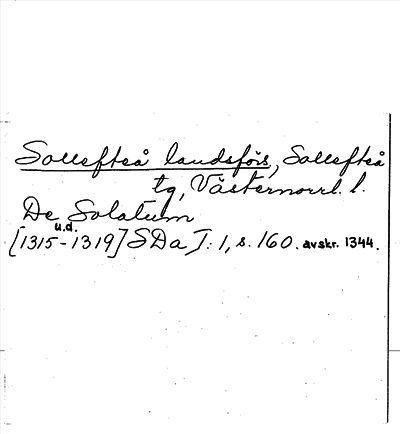 Sollefteå landsförs, Sollefteå
tg, Västernorrl. l.
De Solatum
u.d.
[1315-1319] SDa I: 1, s. 160. avskr. 1344.